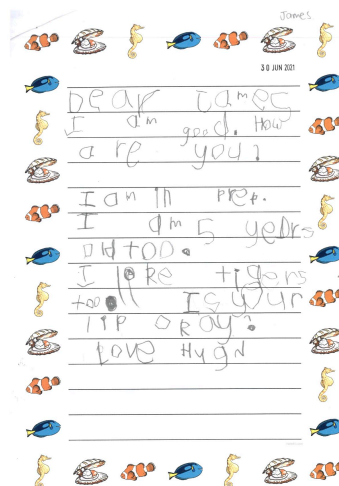 James
30 JUN 2021
Dear James
I am good. How
are you?
I am in prep.
I am 5 years
old too.
I like tigers
too Is your
lip okay?
Love Hugh